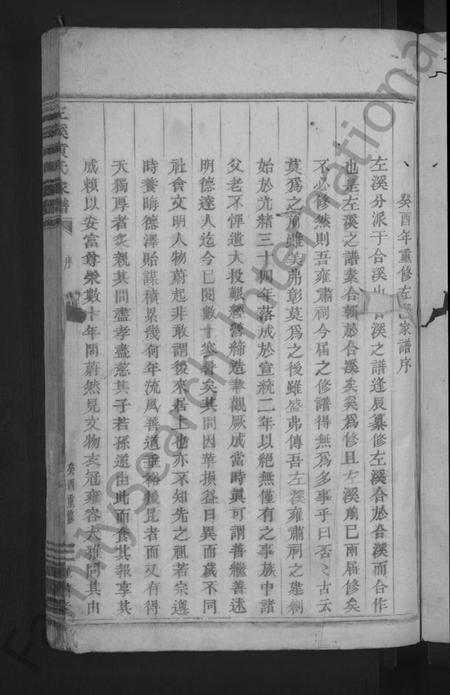 癸酉年重修左溪家譜序
左溪分派于合溪也合溪之譜逢辰纂修左溪合於合溪而合作
也是左溪之譜素合輯於合溪矣奚爲修且左溪前已兩屆修矣
不必修然則吾雍肅祠今屆之修譜得無爲多事乎曰否〻古云
莫爲之前雖美弗彰莫爲之後雖盛弗傳吾左溪雍肅祠之建剏
始於光緒三十四年落成於宣統二年以絕無僅有之事族中諸
父老不憚遺大投艱慘淡締造聿觀厥成當時眞可謂善繼善述
明德達人迄今已閱數十寒暑矣其間因革損益日異而歲不同
社會文明人物蔚起非敢謂後來居上也亦不知先之祖若宗遵
時養晦德澤貽謀積累幾何年流風善道垂裕後昆者而又有得
天獨厚者父親其間盡孝盡慈其子若孫道由此而食其報享其
成賴以安富尊榮數十年間蔚然見文物衣冠雍容大雅同其由
黃氏家譜
序
癸酉重修
FamilySearch International